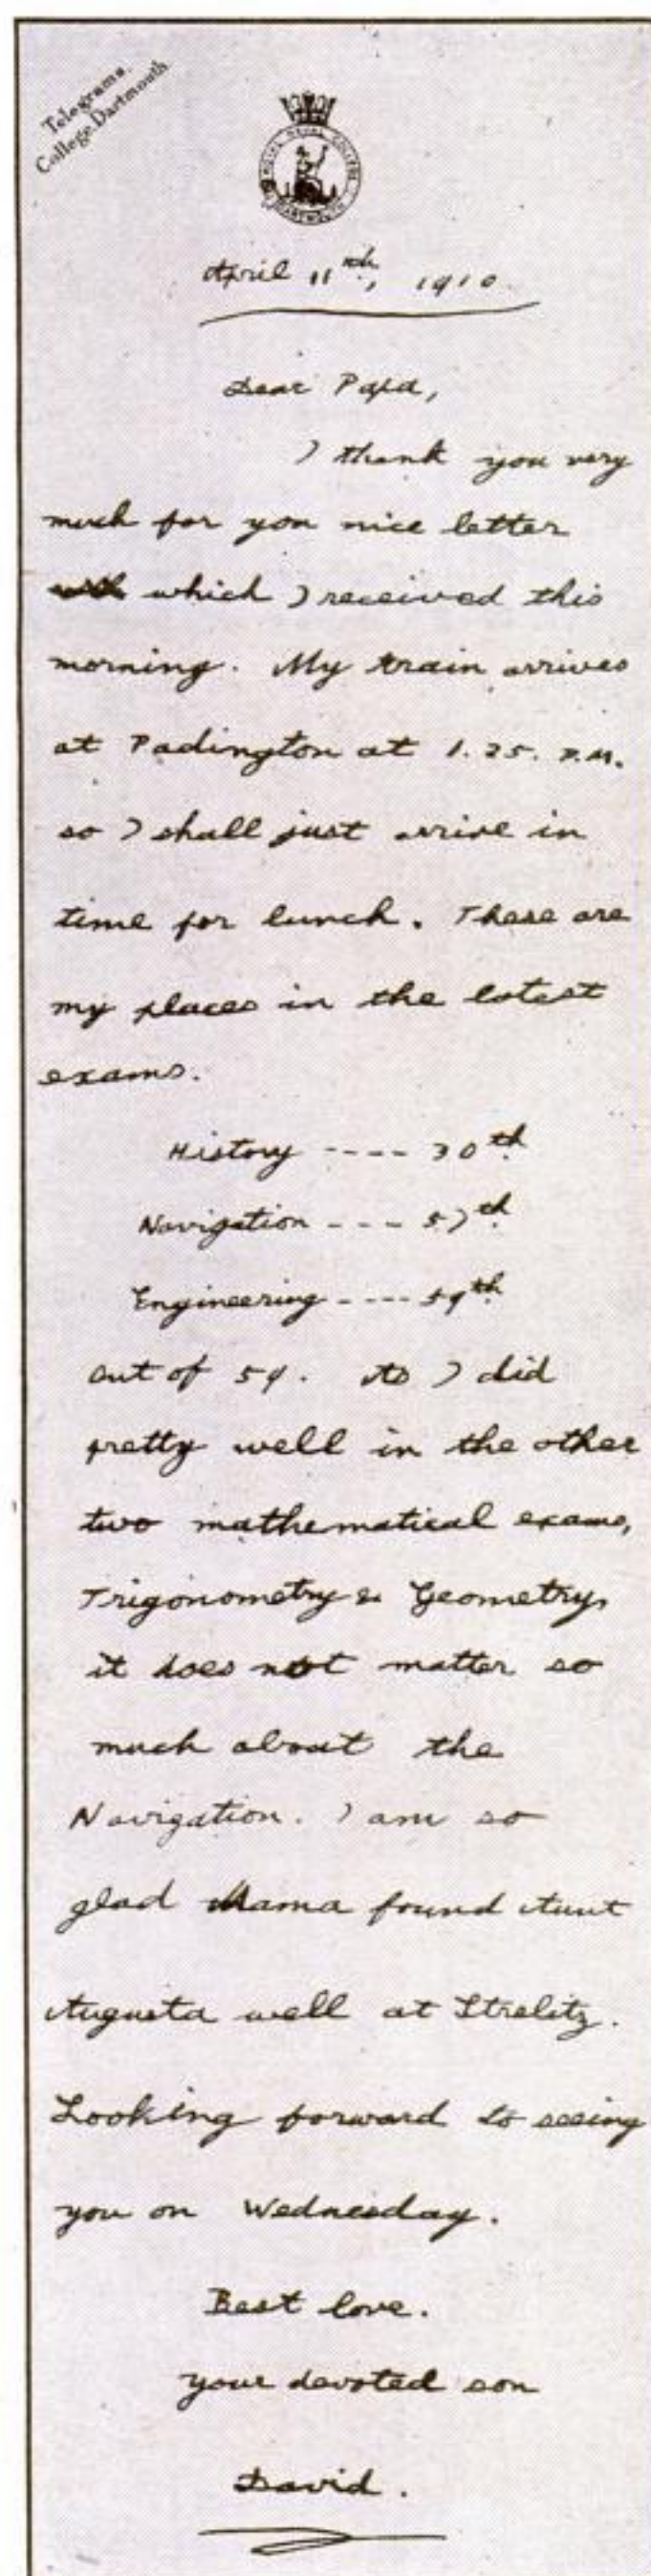 Telegrams.
College, Dartmouth.
ROYAL NAVAL COLLEGE
DARTMOUTH
April 11th, 1910.
Dear Papa,
I thank you very
much for you nice letter
which I received this
morning. My train arrives
at Padington at 1.25. P.M.
so I shall just arrive in
time for lunch. These are
my places in the latest
exams.
History ---- 30th
Navigation --- 57th
Engineering ---- 59th
out of 59. As I did
pretty well in the other
two mathematical exams,
Trigonometry & Geometry,
it does not matter so
much about the
Navigation. I am so
glad Mama found Aunt
Augusta well at Strelitz.
Looking forward to seeing
you on Wednesday.
Best love.
your devoted son
David.